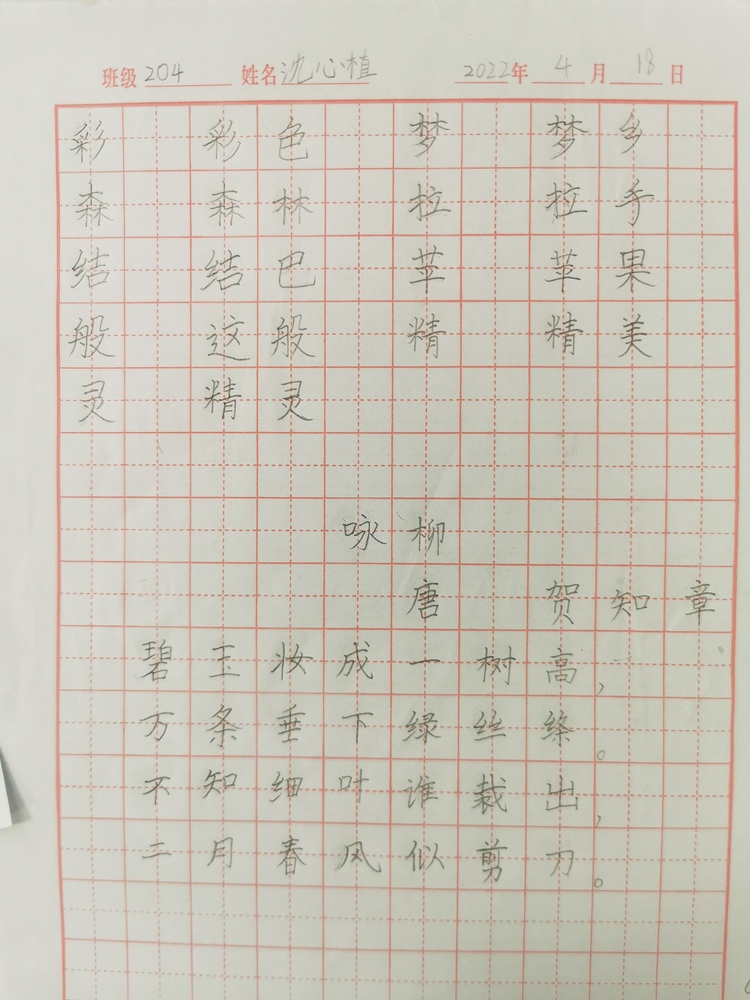 班级 204 姓名 沈心植 2022年 4 月 18 日
彩 彩色 梦 梦乡
森 森林 拉 拉手
结 结巴 苹 苹果
般 这般 精 精美
灵 精灵
咏柳
唐 贺知章
碧玉妆成一树高，
万条垂下绿丝绦。
不知细叶谁裁出，
二月春风似剪刀。